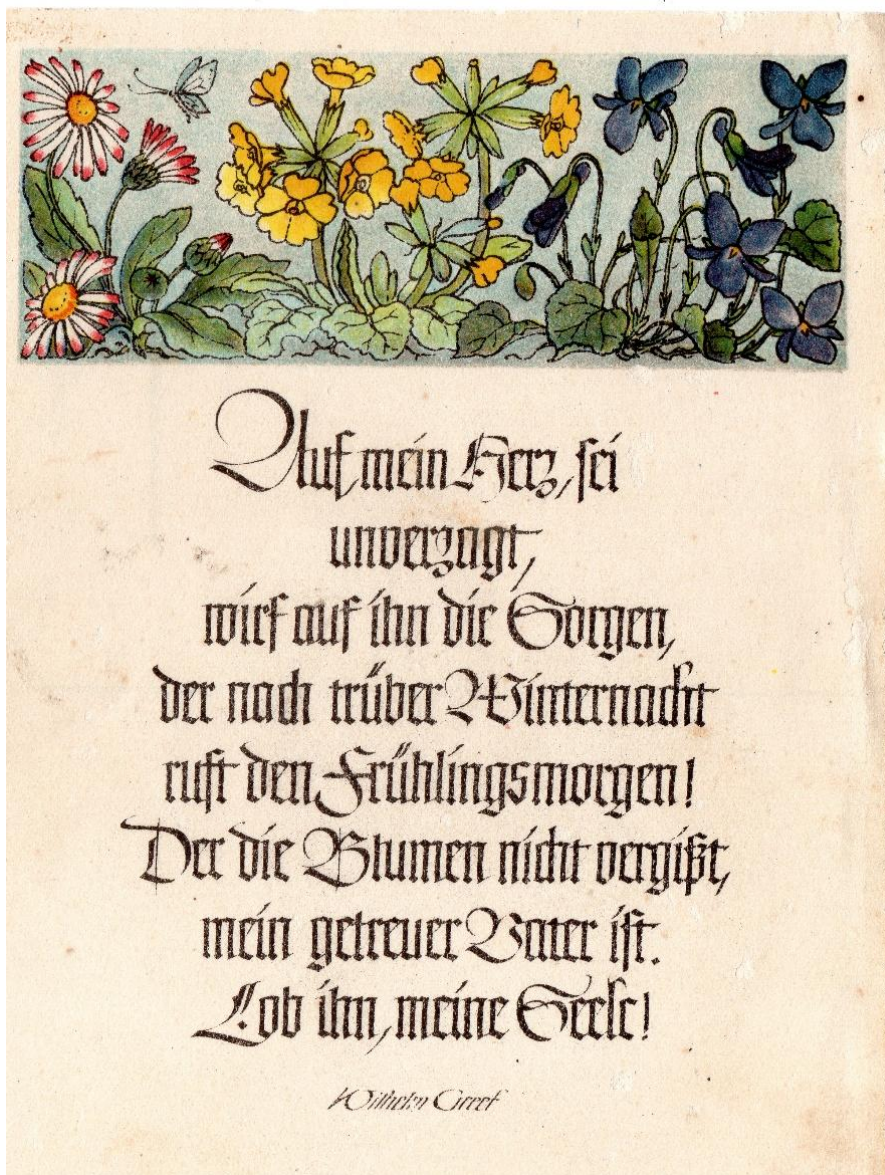 Auf, mein Herz, sei
unverzagt,
wirf auf ihn die Sorgen,
der nach trüber Winternacht
ruft den Frühlingsmorgen!
Der die Blumen nicht vergißt,
mein getreuer Vater ist.
Lob ihn, meine Seele!
Wilhelm Greef